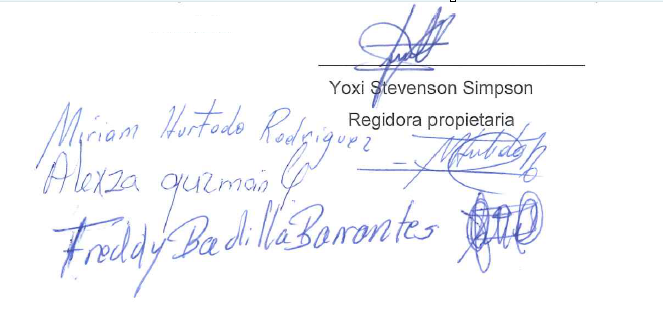 Yoxi Stevenson Simpson
Regidora propietaria
Miriam Hurtado Rodriguez
Alexza guzman
Freddy Badilla Barrantes